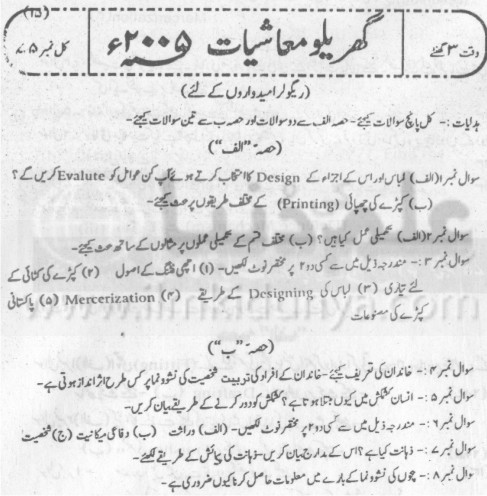 (T5)
وقت ۳ گھنٹے گھریلو معاشیات ۲۰۰۵ء کل نمبر ۷۵
(ریگولر امیدواروں کے لئے)
ہدایات :- کل پانچ سوالات کیجئے- حصہ الف سے دو سوالات اور حصہ ب سے تین سوالات کیجئے-
(حصہ "الف")
سوال نمبر ۱ (الف) لباس اور اس کے اجزاء کے Design کا انتخاب کرتے ہوئے آپ کن عوامل کو Evalute کریں گے؟
(ب) کپڑے کی چھپائی (Printing) کے مختلف طریقوں پر بحث کیجئے-
سوال نمبر ۲ (الف) تکمیلی عمل کیا ہیں؟ (ب) مختلف قسم کے تکمیلی عملوں پر مثالوں کے ساتھ بحث کیجئے-
سوال نمبر ۳ :- مندرجہ ذیل میں سے کسی دو ۲ پر مختصر نوٹ لکھیں- (۱) اچھی فٹنگ کے اصول (۲) کپڑے کی کٹائی کے
لئے تیاری (۳) لباس کی Designing کے طریقے (۴) Mercerization (۵) پاکستانی
کپڑے کی مصنوعات
(حصہ "ب")
سوال نمبر ۴ :- خاندان کی تعریف کیجئے- خاندان کے افراد کی تربیت شخصیت کی نشوونما پر کس طرح اثر انداز ہوتی ہے-
سوال نمبر ۵ :- انسان کشمکش میں کیوں مبتلا ہوتا ہے؟ کشمکش کو دور کرنے کے طریقے بیان کریں-
سوال نمبر ۶ :- مندرجہ ذیل میں سے کسی دو ۲ پر مختصر نوٹ لکھیں- (الف) وراثت (ب) دفاعی میکانیت (ج) شخصیت
سوال نمبر ۷ :- ذہانت کیا ہے؟ اس کے مدارج بیان کریں- ذہانت کی پیمائش کے طریقے لکھئے-
سوال نمبر ۸ :- بچوں کی نشوونما کے بارے میں معلومات حاصل کرنا کیوں ضروری ہے-